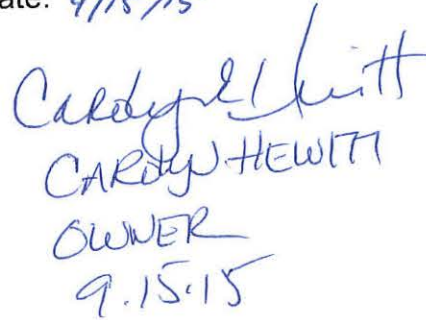 ate: 9/15/15
Carolyn E Hewitt
CAROLYN HEWITT
OWNER
9.15.15